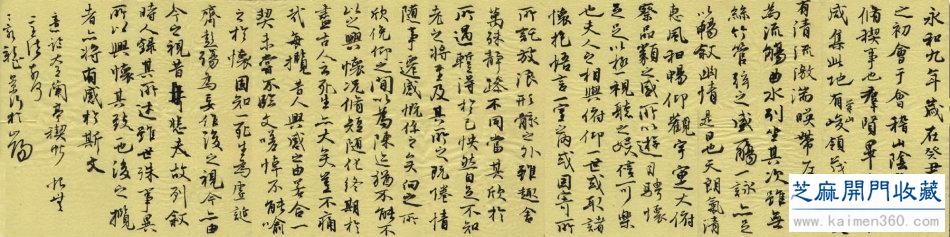 永和九年歲在癸丑
之初會于會稽山陰
脩稧事也群賢畢
咸集此地有崇山峻領茂
有清流激湍暎帶左
為流觴曲水列坐其次雖無
絲竹管弦之盛觴一詠亦足
以暢叙幽情是日也天朗氣清
惠風和暢仰觀宇宙之大俯
察品類之盛所以遊目騁懷
足以極視聽之娛信可樂
也夫人之相與俯仰一世或取諸
懷抱悟言一室內或因寄所
所託放浪形骸之外雖趣舍
萬殊靜躁不同當其欣於
所遇暫得於己怏然自足不知
老之將至及其所之既惓情
隨事遷感慨係之矣向之所
欣俛仰之間以為陳迹猶不能不
以之興懷況脩短隨化終期於
盡古人云死生亦大矣豈不痛
哉每攬昔人興感之由若合一
契未嘗不臨文嗟悼不能喻
之於懷固知一死生為虛誕
齊彭殤為妄作後之視今亦由
今之視昔悲夫故列叙
時人錄其所述雖世殊事異
所以興懷其致一也後之攬
者亦將有感於斯文
芝麻開門收藏
www.kaimen360.com